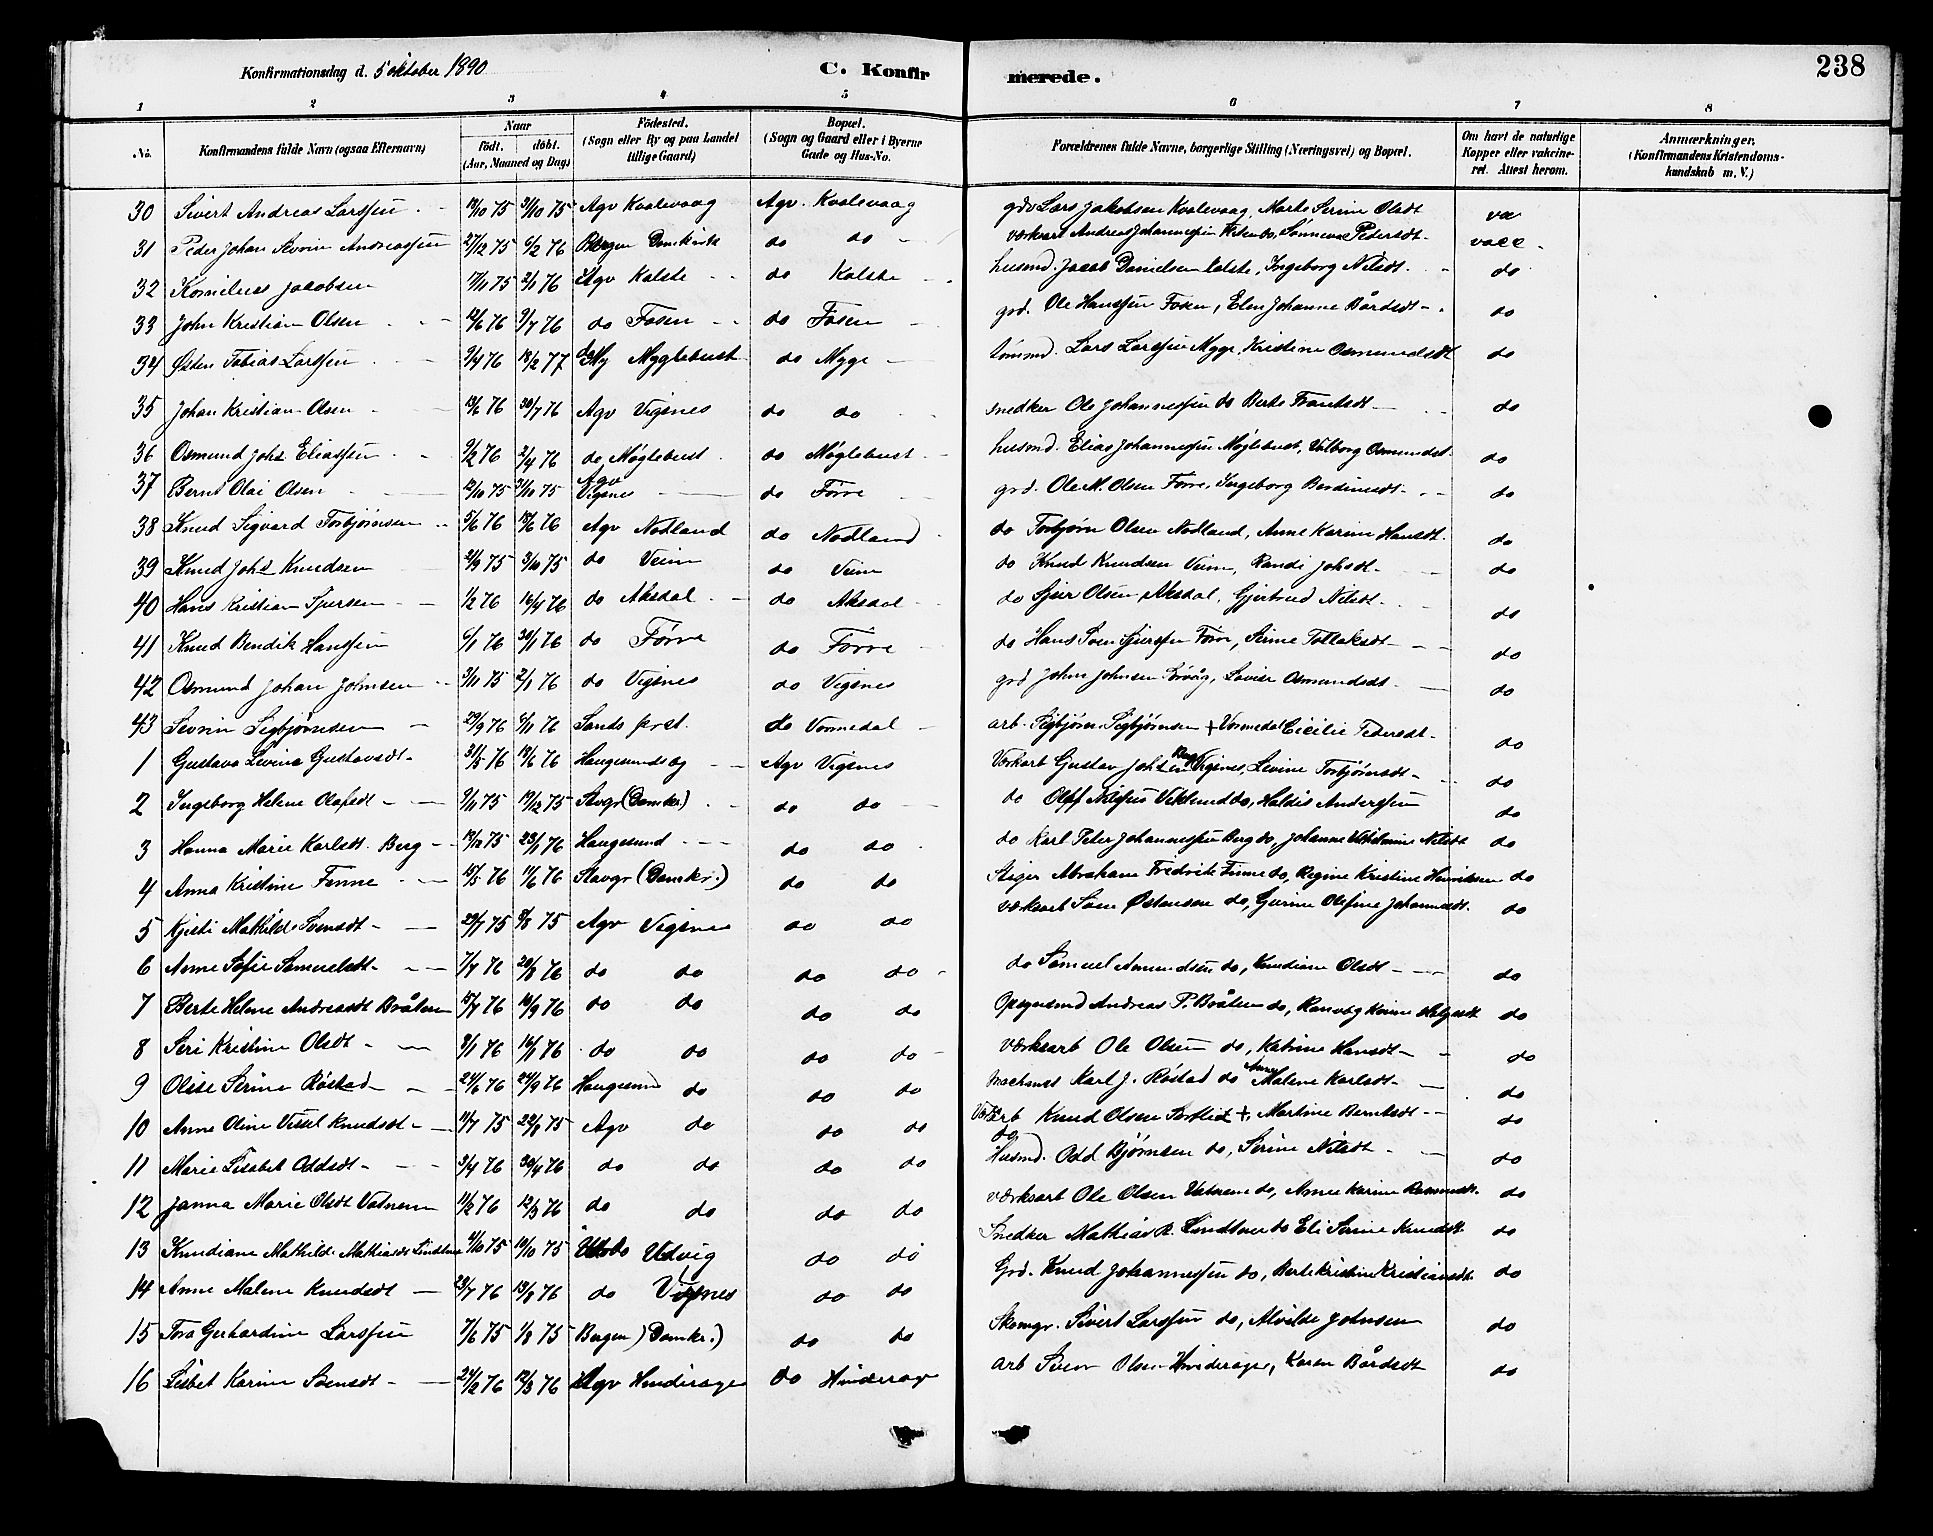 238
Konfirmationsdag d. 5 oktober 1890 C. Konfirmerede.
1 2 3 4 5 6 7 8
No. Konfirmandens fulde Navn (ogsaa Efternavn) Naar Födt. döbt. (Aar, Maaned og Dag) Födested. (Sogn eller By og paa Landet tillige Gaard) Bopæl. (Sogn og Gaard eller i Byerne Gade og Hus-No. Forældrenes fulde Navne, borgerlige Stilling (Næringsvei) og Bopæl. Om havt de naturlige Kopper eller vakcineret. Attest herom. Anmærkninger. (Konfirmandens Kristendomskundskab m. V.)
30 Sivert Andreas Larssen 3/10 75 Agv Kvalevaag Agv. Kvalevaag Lars Jakobsen Kvalevaag, Marte Serine Olsdt va
31 Peder Johan Severin Andreassen 27/12 75 6/2 76 Bergen Domkirke do do Andreas Johannessen do, Pedersdt vacc
32 Kornelius Jacobsen 17/11 75 2/1 76 Agv Kalstø do Kalstø husmd. Jacob Danielsen Kalstø, Ingeborg Nilsdt. do
33 John Kristian Olsen 9/7 76 do Fosen do Fosen grd. Ole Hanssen Fosen, Elen Johanne Bårdsdt do
34 Østen Tobias Larssen 9/4 76 18/2 77 Myglebust do Myge tømmd. Lars Larssen Myge, Kristine Osmundsdt do
35 Johan Kristian Olsen 13/6 76 30/7 76 Agv Vigsnes do do snedker Ole Johannessen do Berte Frantsdt do
36 Osmund Johs Eliassen 9/2 76 2/4 76 do Møglebust do Møglebust husmd. Elias Johannessen Møglebust, Valborg Osmundsdt. do
37 Bernt Olai Olsen 12/10 75 31/10 75 Agv Vigsnes do Førre grd. Ole M. Olsen Førre, Ingeborg do
38 Knud Sigvard Torbjørnsen 5/6 76 18/6 76 Agv Nodland do Nodland do Torbjørn Olsen Nodland, Anne Karine Hansdt. do
39 Knud Johs Knudsen 3/10 75 do Veim do Veim do Knud Knudsen Veim, Randi Johsdt do
40 Hans Kristian Sjursen 1/2 76 16/4 76 do Aksdal do Aksdal do Sjur Olsen Aksdal, Gjertrud Nilsdt do
41 Knud Bendik Hanssen 6/1 76 30/1 76 do Førre do Førre do Hans Sjurssen Førre, Serine Tollaksdt do
42 Osmund Johan Johnsen 3/11 75 2/1 76 do Vigsnes do Vigsnes grd John Johnsen, Lovise Osmundsdt do
43 Sevrin Sigbjørnsen 29/9 76 6/11 76 Sands prst. do Vormedal arb. Sigbjørn Sigbjørnsen + Vormedal Cicilie Pedersdt do
1 Gustava Levine Gustavsdt 31/5 76 18/6 76 Haugesunds Agv Vigsnes Værkarb Gustav Johsen Berg Vigsnes, Levine Torbjørnsdt do
2 Ingeborg Helene Olafsdt 9/11 75 19/12 75 Stavgr (Domkr.) do do do Olaf Nilssen Viklund do, Haldis Anderssen do
3 Hanna Marie Karlsdt. Berg 13/12 75 23/1 76 Haugesund do do do Karl Peter Johannessen Berg do, Johanne Vilhelmine Nilsdt do
4 Anna Kristine Finne 18/5 76 11/6 76 Stavgr (Domkr.) do do Stiger Abraham Fredrik Finne do, Regine Kristine Henriksen do
5 Kjisti Mathilde Svensdt 29/7 75 8/8 75 Agv Vigsnes do do værksarb Sven Østensen do, Gurine Olefine Johannesdt. do
6 Anne Sofie Samuelsdt 7/7 76 20/8 76 do do do do do Samuel Amundsen do, Knudiane Olsdt do
7 Berte Helene Andreasdt Bråten 15/7 76 10/9 76 do do do do Opsynsmd Andreas P. Bråten do, Ranveig Karine do
8 Siri Kristine Olsdt 3/1 76 16/1 76 do do do do værksarb Ole Olsen do, Katrine Hansdt do
9 Olise Serine Røstad 24/6 76 24/9 76 Haugesund do do do Karl J. Røstad do Anne Malene Karlsdt do
10 Anne Oline Vissel Knudsdt 11/7 75 22/8 75 Agv do do do Værkarb Knud Olsen +, Martine Berntsdt do
11 Marie Lisabet Oddsdt 3/4 76 30/4 76 do do do do Husmd. Odd Bjørnsen do, Serine Nilsdt do
12 Janna Marie Olsdt Vatnem 11/2 76 12/3 76 do do do do værksarb Ole Olsen do, Anne Karine do
13 Knudiane Mathilde Mathiasdt Lindtner 10/10 75 Udvig do do Snedker Mathias R. Lindtner do Eli Serine Knudsdt do
14 Anne Malene Knudsdt 23/7 76 13/8 76 do Vigsnes do do Grd. Knud Johannessen do, Berte Kristine Kristiansdt do
15 Tora Gerhardine Larssen 7/6 75 1/8 75 Bergen (Domkr.) do do Skomgr. Sivert Larssen do, Alvilde Johnsen do
16 Lisbet Karine Svensdt 24/2 76 12/3 76 Agv Hinderager do Hinderag arb Sven Olsen Hinderager, Karen Bårdsdt do